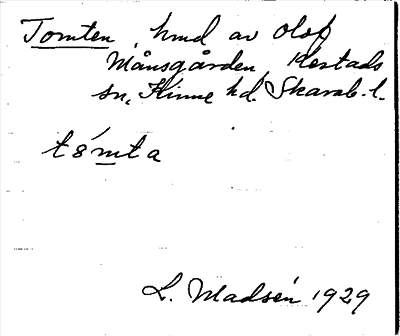 Tomten, hmd av Olof
Månsgården, Kestads
sn, Kinne hd. Skarab. l.
t8́mta
L. Madsén 1929